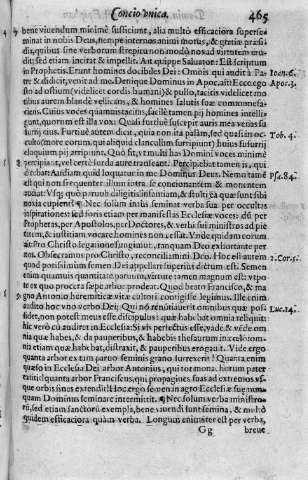 Concio vnica. 465
bene viuendum minimè sufficiunt, alia multò efficaciora superse-
minat in nobis Deus, nempe internos animi motus, & gratiæ præsi-
dia, quibus sine verborum strepitu non modò nos ad virtutem eru-
dit, sed etiam incitat & impellit. Ait quippe Saluator: Est scriptum
in Prophetis. Erunt homines docibiles Dei: Omnis qui audit à Pa- Ioan.6.
tre & didicit, venit ad me. Denique Dominus in Apoc. ait: Ecce ego Apoc.3.
sto ad ostium (videlicet cordis humani) & pulso, tacitis videlicet mo-
tibus aurem blandè vellicans, & homines salutis suæ commonefa-
ciens. Cuius voces quamuis tacitas, facilè tamen pij homines intelli-
gunt, quorum est illa vox: Quasi furtiuè suscepit auris mea venas su-
surrij eius. Furtiuè autem dicit, quia non ita palàm, sed quasi in oc- Tob.4.
culo (more eorum, qui aliquid clanculum surripiunt) huius susurrij
eloquium pij arripiunt. Quo fit, vt multi has Domini voces minimè
percipiant, vel certè surda aure transeant. Percipiebat tamen is, qui
dicebat: Audiam quid loquatur in me Dominus Deus. Nemo tamè Psa.84.
est qui non frequenter illum intra se concionantem & monentem
audiat. Vsque quo paruuli diligitis infantiam, & stulti ea quæ sunt sibi
noxia cupient? ¶ Nec solùm intus seminat verba sua per occultas
inspirationes: sed foris etiam per manifestas Ecclesiæ voces: dum per
Prophetas, per Apostolos, per Doctores, & verbi sui ministros ad pie-
tatem, & iustitiam vocare homines non cessat. Vnde quidam eorum
ait: Pro Christo legatione fungimur, tanquam Deo exhortante per
nos. Obsecramus pro Christo, reconciliamini Deo. Hoc est autem 2.Cor.5.
quod possit minimum semen Dei appellari superiùs dictum est. Semen
etiam quod quamuis quantitate paruum, virtute tamen magnum est: vtpo-
te ex quo procera sæpe arbor prodeat. Quod beatus Franciscus, & ma
gno Antonio heremiticæ vitæ cultori contigisse legimus. Ille enim
audito hoc vno verbo Dei: Qui nō renũtiauerit omnibus quæ pos- Luc.14.
sidet, non potest meus esse discipulus: quæ habebat omnia reliquit:
hic verò cũ audiret in Ecclesia: Si vis perfectus esse, vade & vēde om
nia quæ habes, & da pauperibus, & habebis thesaurum in cælo: om-
nia etiam quæ habebat, distraxit, & pauperibus erogauit. Vide ergo
quanta arbor ex tam paruo seminis grano surrexerit! Quanta, enim
quæso in Ecclesia Dei arbor Antonius, qui tot monachorum pater
extitit: quanta arbor Franciscus, qui propagines suas ad extremos vs-
que orbis fines extendit! Hoc ergo semen in agro Ecclesiæ suæ nun-
quam Dominus seminare intermittit. ¶ Nec solum verba ministro-
rũ, sed etiam sanctorũ exempla, bene viuendi sunt semina, & multò
quidem efficaciora quàm verba. Longum enim iter est per verba,
Gg breue